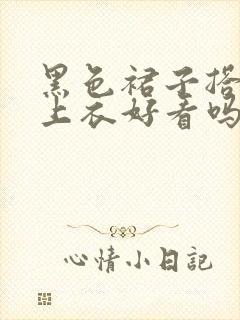 黑色裙子搭
上衣好看吗
心情小日記